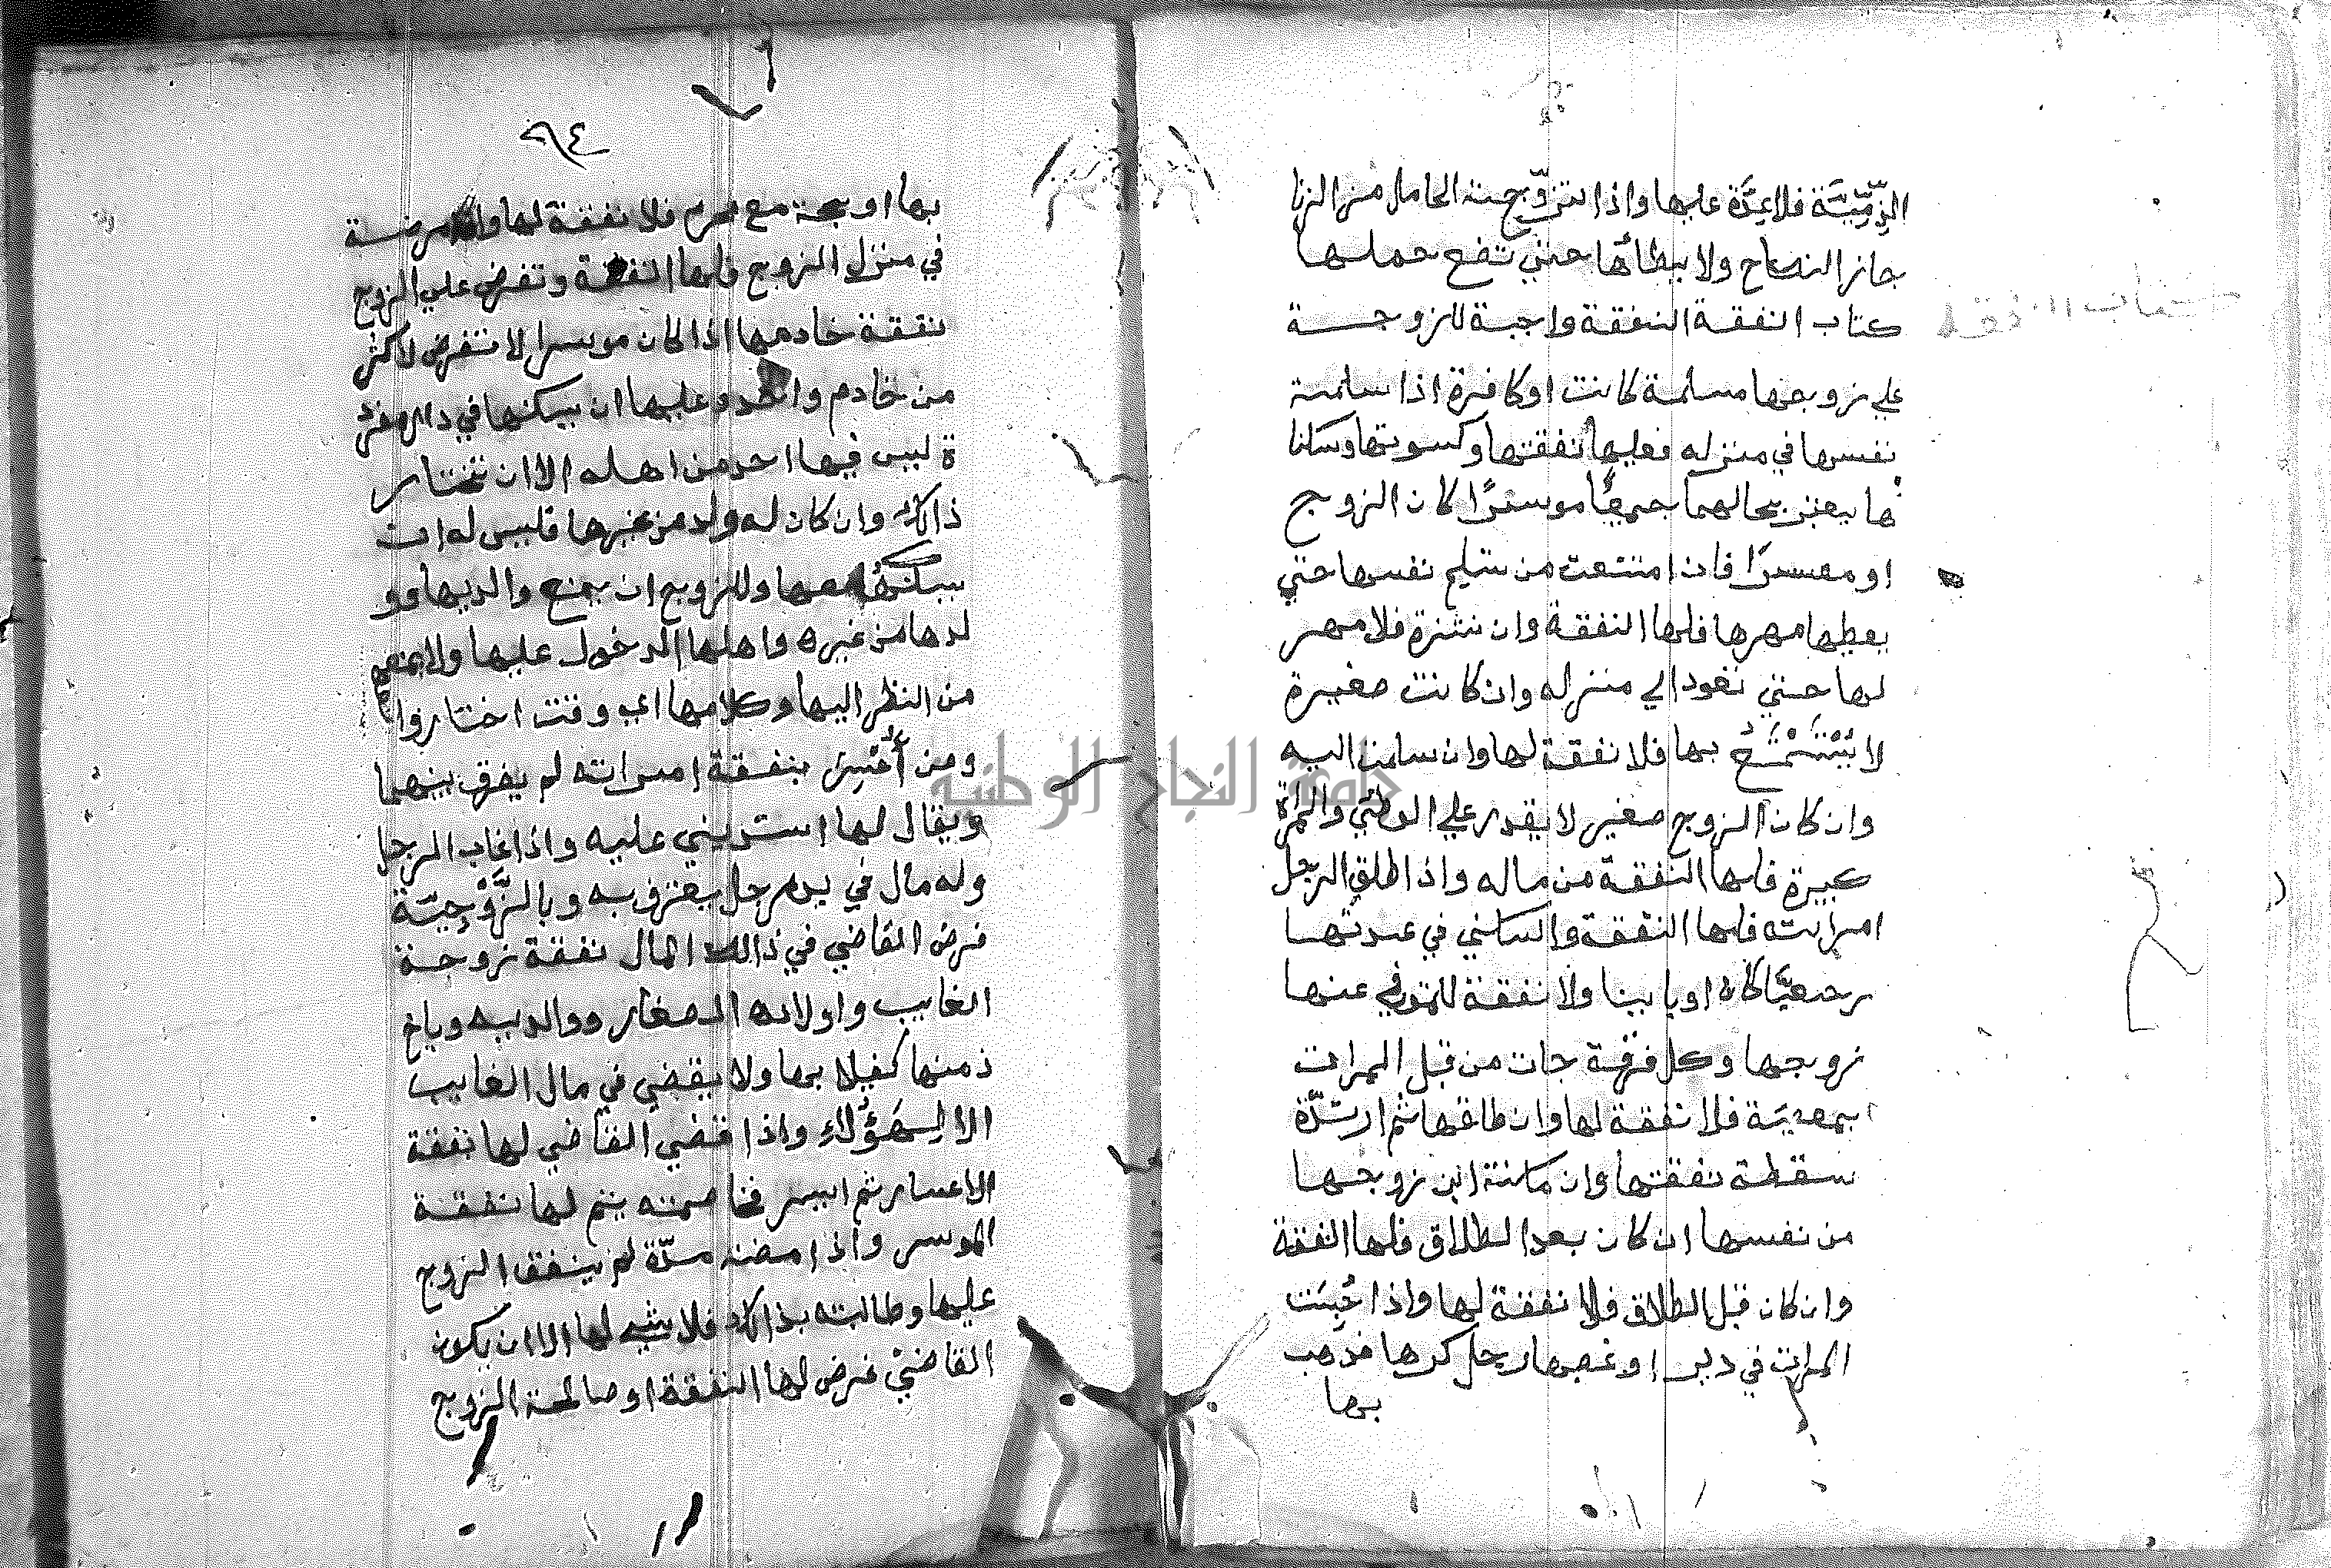 الذِّمِّيَّة فلا عِدَّة عليها واذا تزوّجت الحامل من الزنا
جاز النكاح ولا يطاها حتي تضع حملها
كتاب النفقة النفقة واجبة للزوجة
علي زوجها مسلمة كانت او كافرة اذا سلمت
نفسها في منزله فعليه نفقتها وكسوتها وسكنا
ها يعتبر بحالهما جميعًا موسرًا كان الزوج
او معسرًا فان امتنعت من تسليم نفسها حتي
يعطيها مهرها فلها النفقة وان نشزة فلا مهر
لها حتي تعود الي منزله وان كانت صغيرة
لا يُسْتَمْتَعُ بها فلا نفقة لها وان سلمت اليه
وان كان الزوج صغير لا يقدر علي الوطئي والمرأة
كبيرة فلها النفقة من ماله واذا طلق الرجل
امراته فلها النفقة والسكني في عدتها
رجعيًّا كان او باينا ولا نفقة للمتوفي عنها
زوجها وكل فرقة جات من قبل المرات
بمعصية فلا نفقة لها وان طلقها ثم ارتدّة
سقطة نفقتها وان مكنة ابن زوجها
من نفسها ان كان بعد الطلاق فلها النفقة
وان كان قبل الطلاق فلا نفقة لها واذا حُبِسَت
المرات في دين او غصبها رجل كرها فذهب
بها
٩٤
بها او حجة مع محرم فلا نفقة لها وان مرضة
في منزل الزوج فلها النفقة وتفرض علي الزوج
نفقة خادمها اذا كان موسرا لا تفرض لاكثر
من خادم وعليه ان يسكنها في دار مفرد
ة ليس فيها احد من اهله الا ان تختار
ذالك وان كان له ولد من غيرها فليس له ان
يسكنه معها وللزوج ان يمنع والديها وو
لدها من غيره واهلها الدخول عليها ولا يمنعهم
من النظر اليها وكلامها اي وقت اختاروا
ومن أُعْسِرَ بنفقة امراته لم يفرق بينهما
ويقال لها استديني عليه واذا غاب الرجل
وله مال في يد رجل يعترف به وبالزَّوْجِيَّة
فرض القاضي في ذالك المال نفقة زوجة
الغايب واولاده الصغار ووالديه وياخ
ذ منها كفيلا بها ولا يقضي في مال الغايب
الا لِهَؤُلَاءِ واذا قضي القاضي لها نفقة
الاعسار ثم ايسر فخاصمته يتم لها نفقة
الموسر واذا مضة مدّة لم ينفق الزوج
عليها وطالبته بذالك فلا شيء لها الا ان يكون
القاضي فرض لها النفقة او صالحة الزوج
جامعة النجاح الوطنية